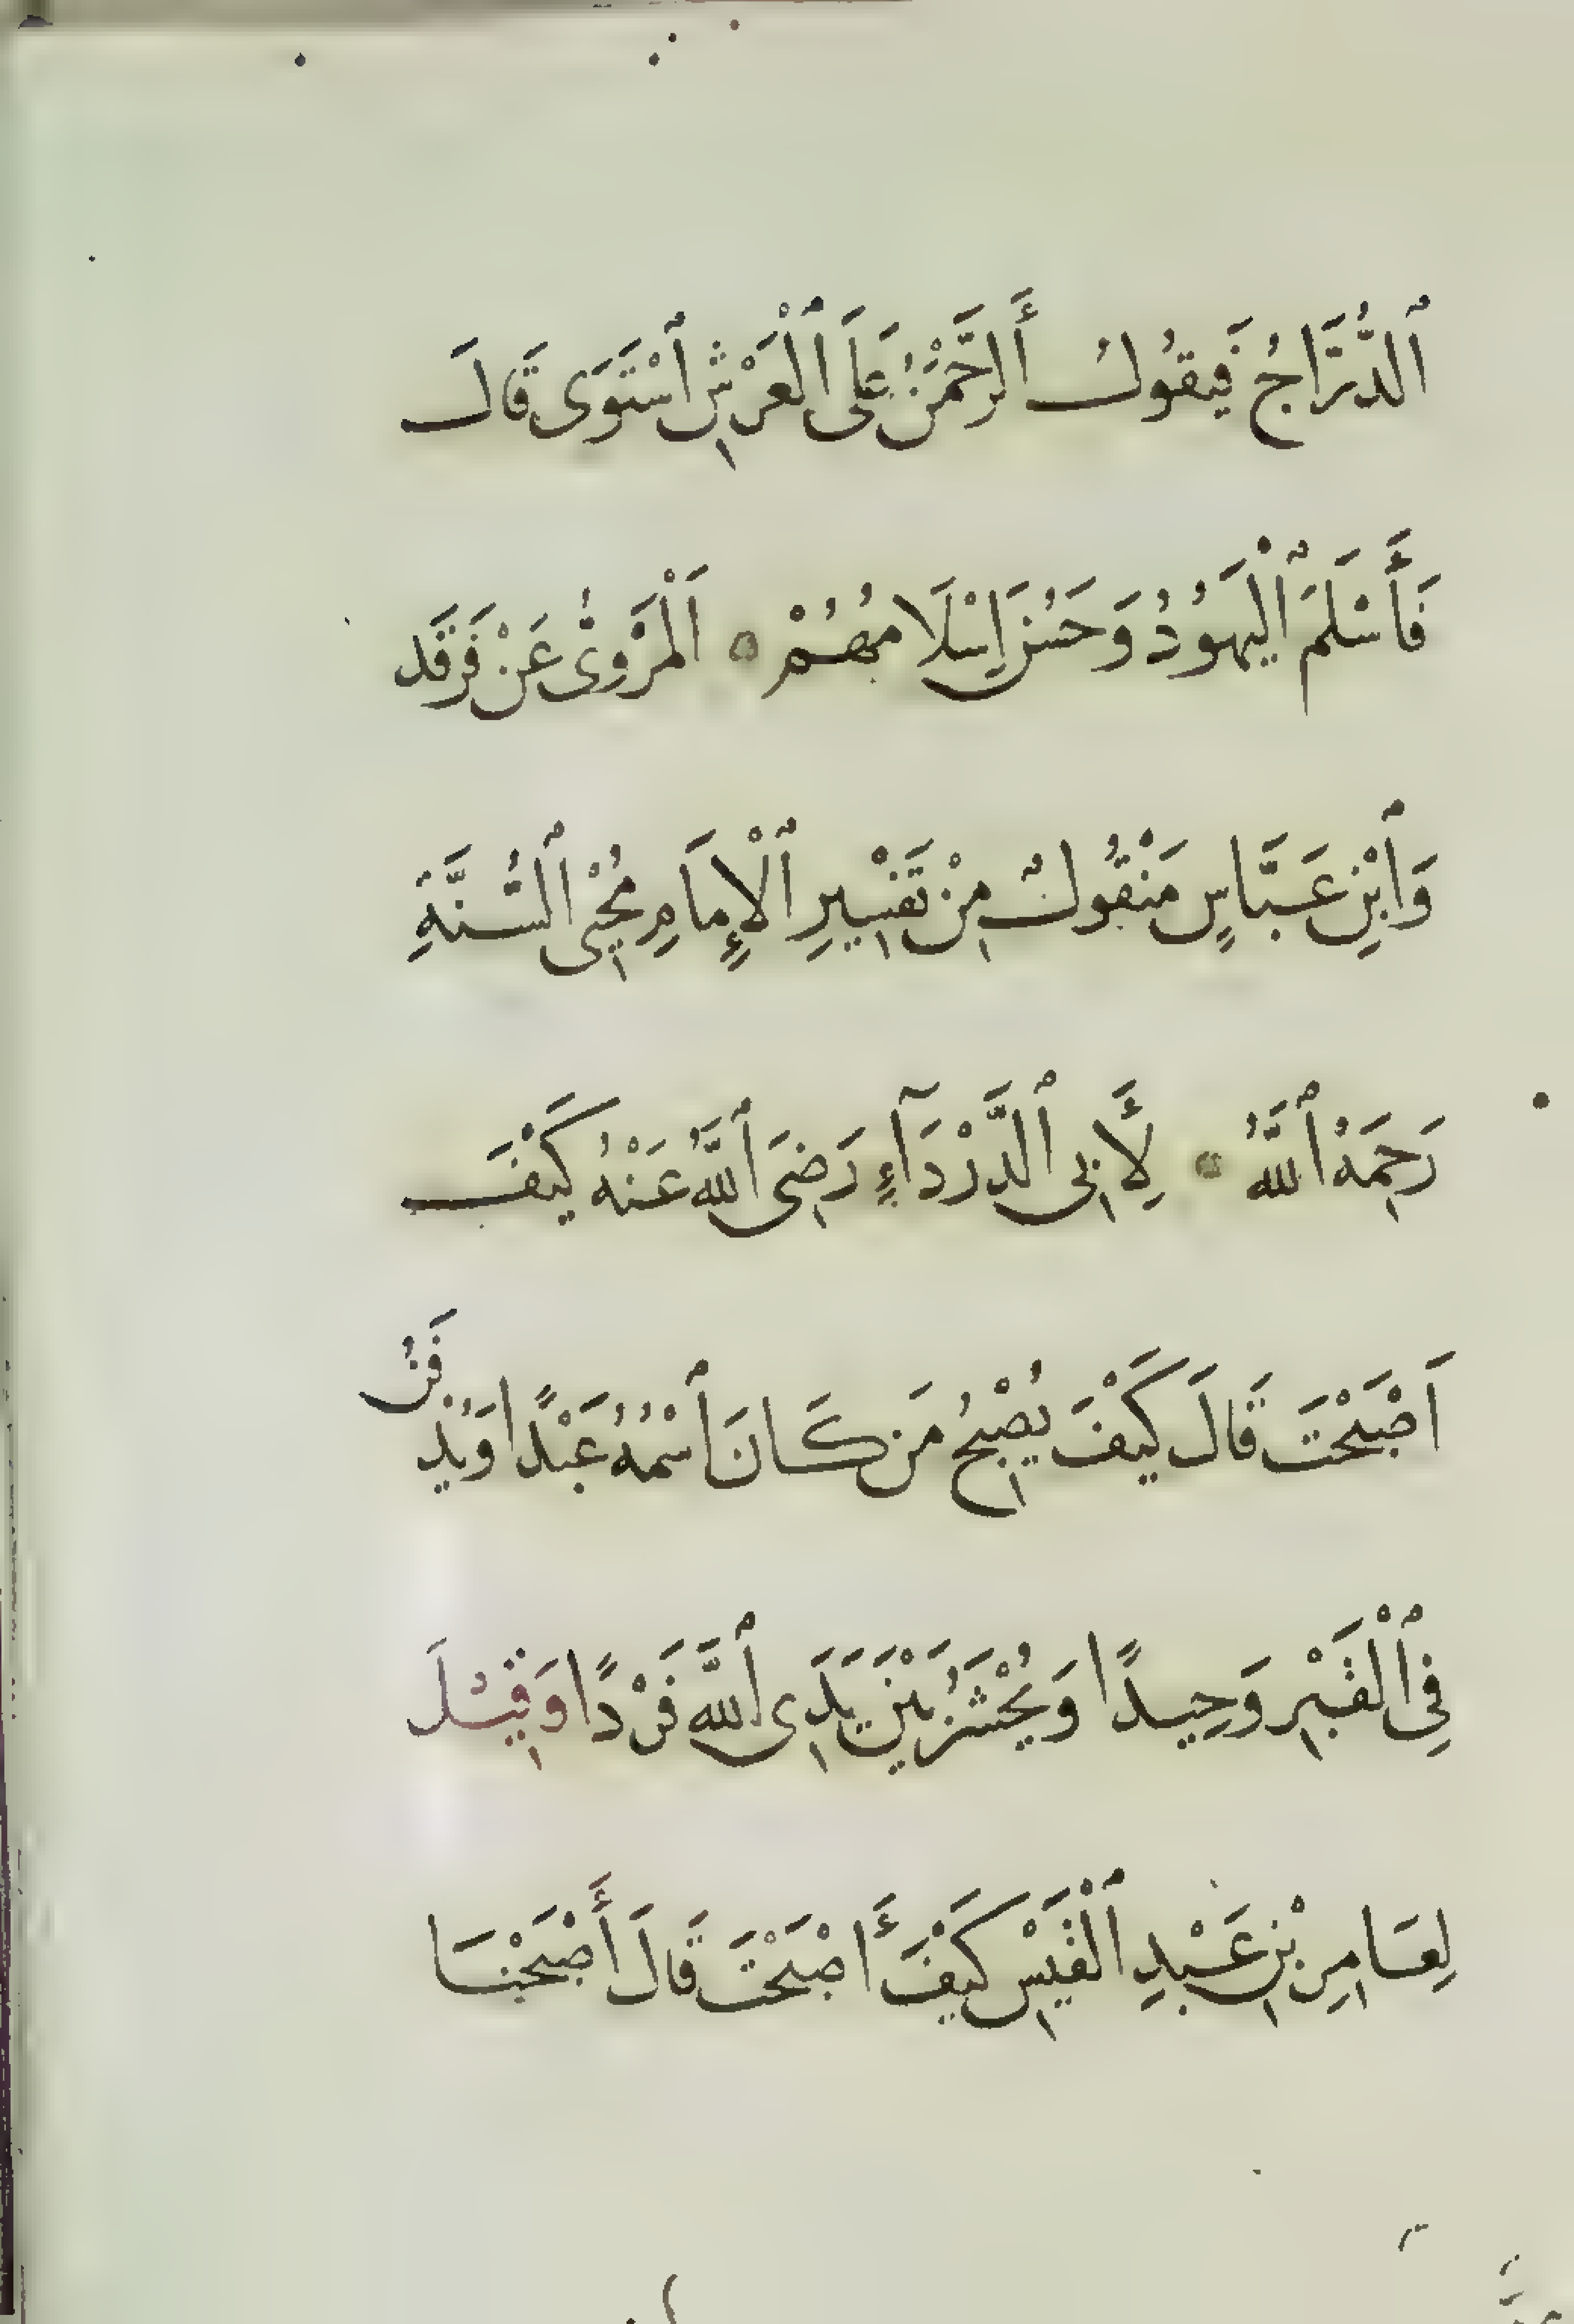 ٱلدُّرَّاجُ فَيَقُولُ أَلرَّحْمَنُ عَلَى ٱلْعَرْشِ ٱسْتَوَى قَالَ
فَأَسْلَمَ ٱلْيَهُودُ وَحَسُنَ اِسْلَامُهُمْ ۝ اَلْمَرْوِىُّ عَنْ فَرْقَد
وَٱبْنِ عَبَّاسٍ مَنْقُولٌ مِنْ تَفْسِيرِ ٱلْإِمَامِ مُحْيِى ٱلسُّنَّةِ
رَحِمَهُ ٱللَّهُ ۝ لِأَبِى ٱلدَّرْدَآءِ رَضِىَ ٱللَّهُ عَنْهُ كَيْفَ
اَصْبَحْتَ قَالَ كَيْفَ يُصْبِحُ مَن كَانَ ٱسْمُهُ عَبْدًا وَيُدْفَنُ
فِى ٱلْقَبْرِ وَحِيدًا وَيُحْشَرُ بَيْنَ يَدَىِ ٱللَّهِ فَرْدًا وَقِيْلَ
لِعَامِرِ بْنِ عَبْدِ ٱلْقَيْسِ كَيْفَ أَصْبَحْتَ قَالَ أَصْبَحْنَا